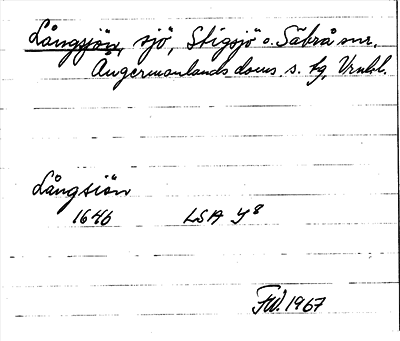 Långsjön, sjö, Stigsjö o. Säbrå snr,
Ångermanlands doms s. tg, Vrnl l.
Långsiön
1646 LSA Y 8
FW. 1967